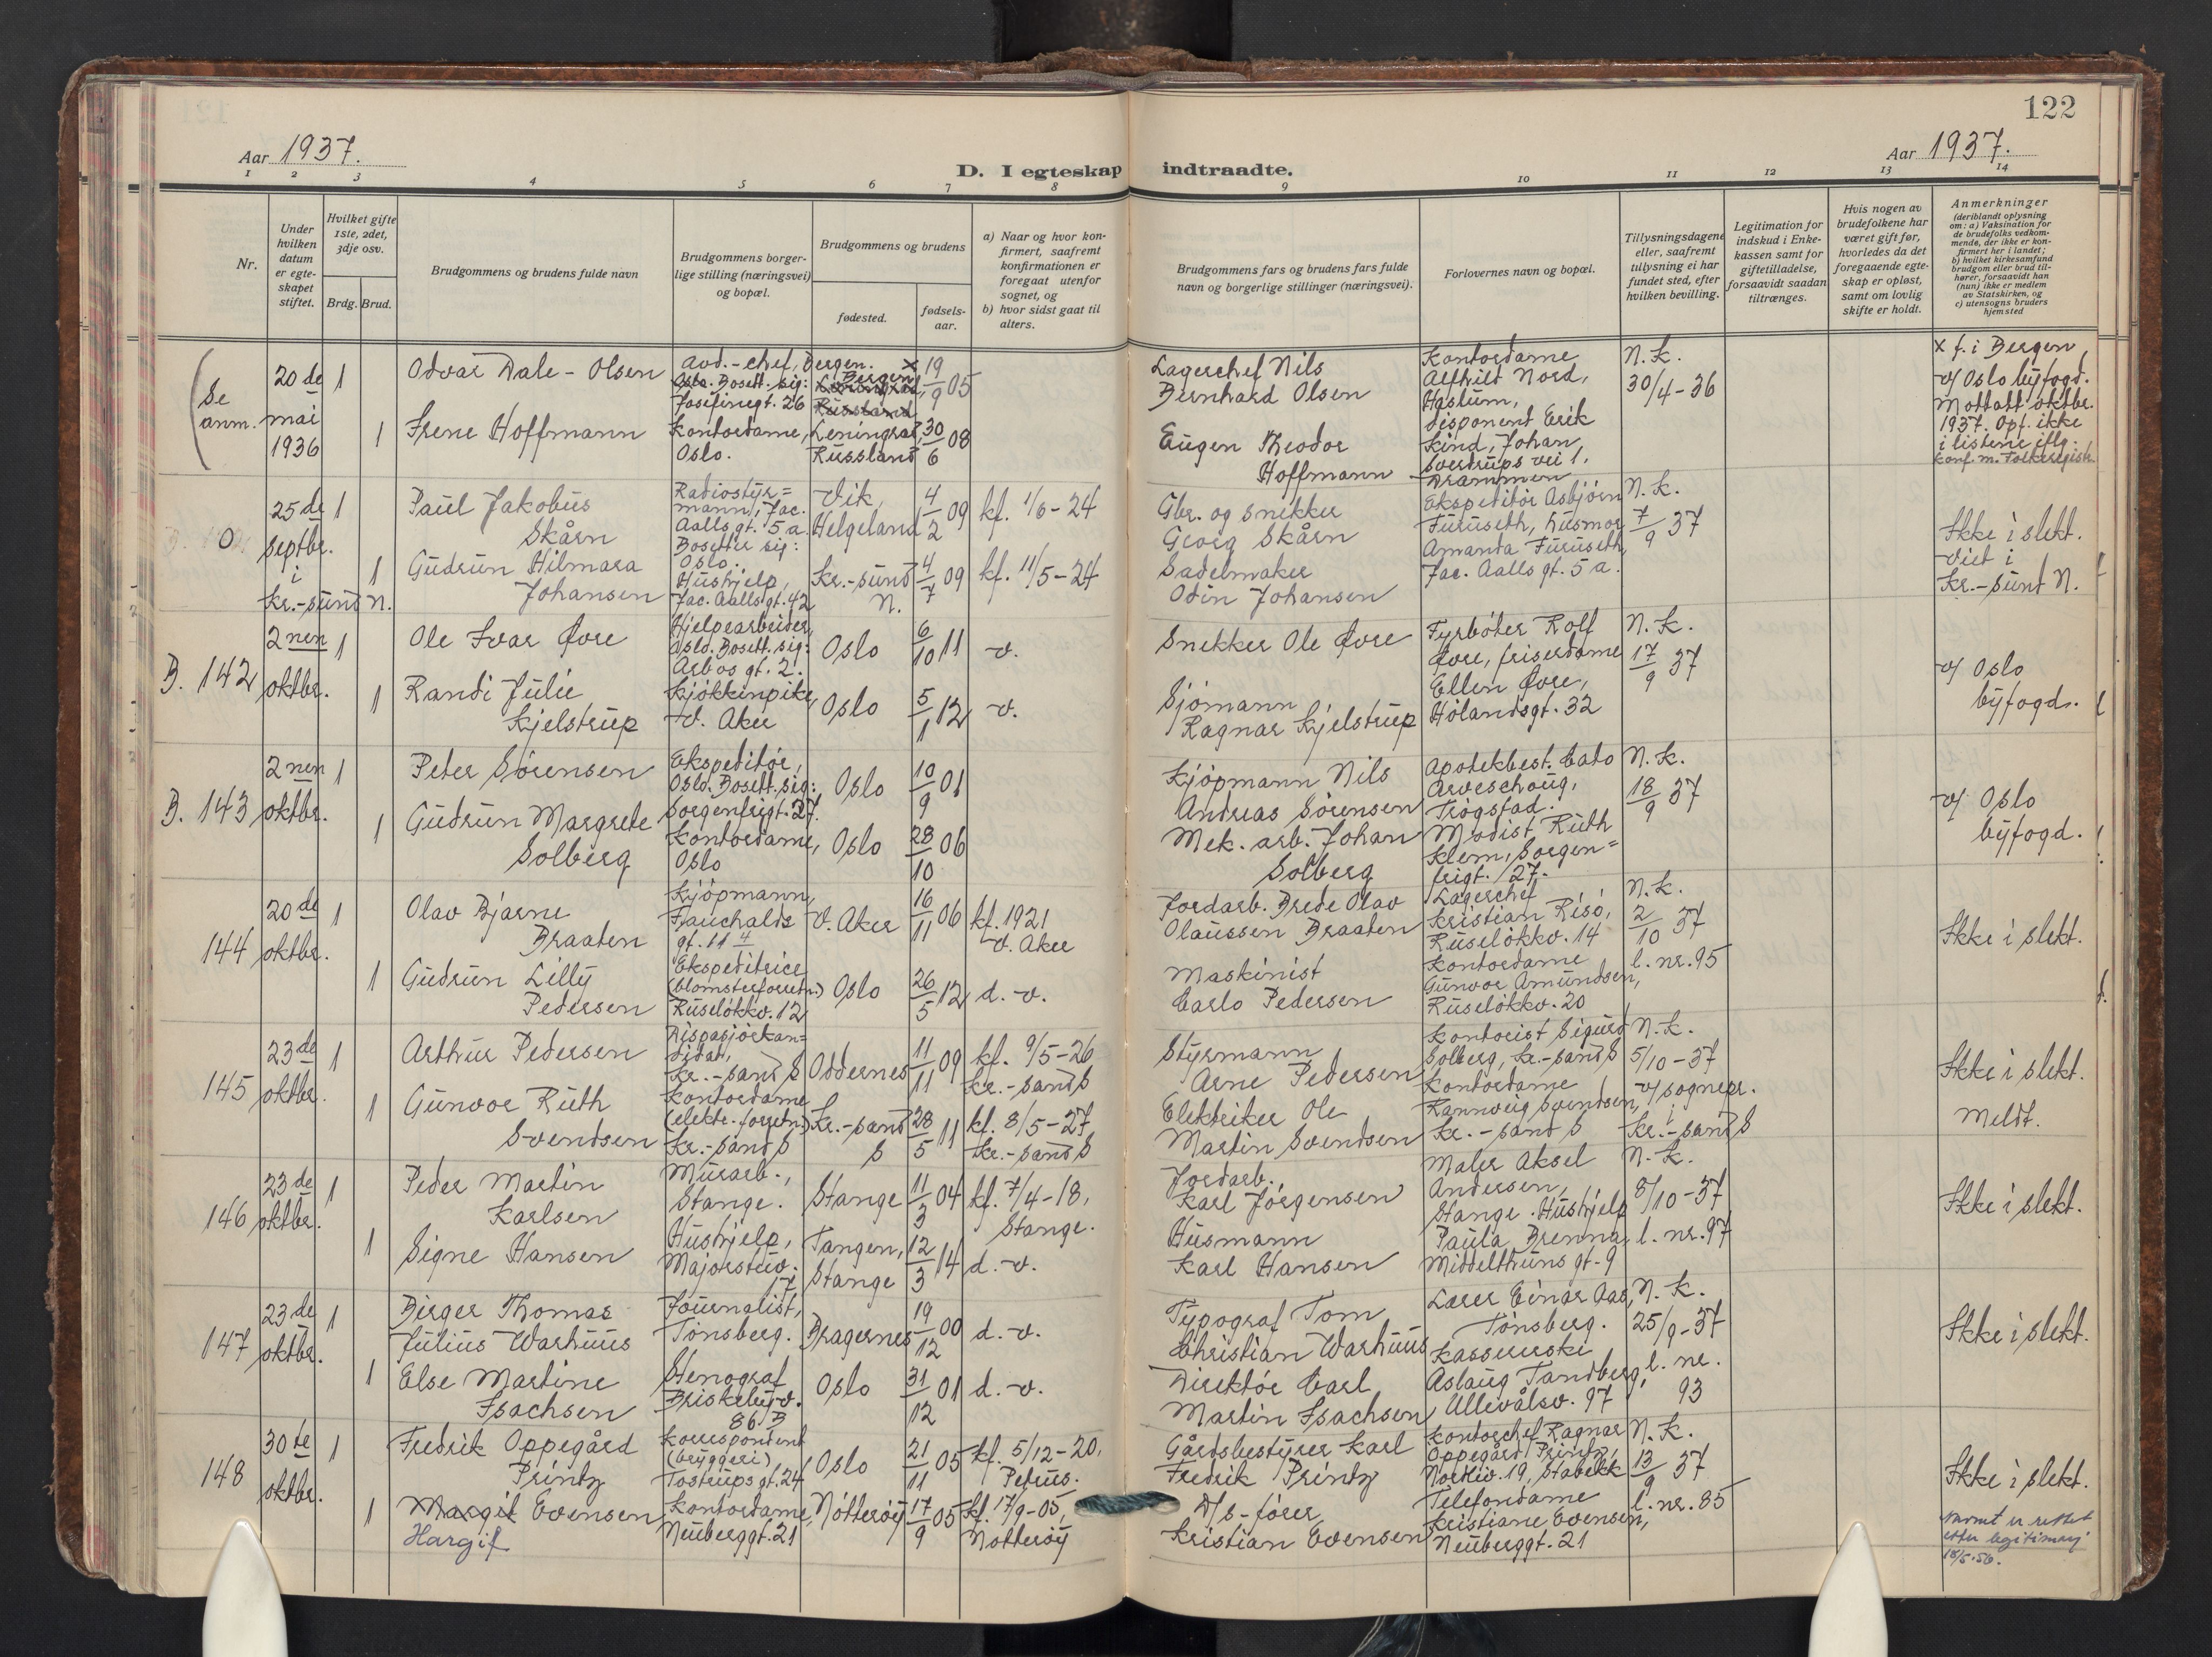 122
Aar 1937.
D. I egteskap indtraadte.
Aar 1937.
1 2 3 4 5 6 7 8 9 10 11 12 13 14
Nr.
Under hvilken datum er egteskapet stiftet.
Hvilket gifte 1ste, 2det, 3dje osv.
Brdg. Brud.
Brudgommens og brudens fulde navn
Brudgommens borgerlige stilling (næringsvei) og bopæl.
Brudgommens og brudens
fødested.
fødselsaar.
a) Naar og hvor konfirmert, saafremt konfirmationen er foregaat utenfor sognet, og
b) hvor sidst gaat til alters.
Brudgommens fars og brudens fars fulde navn og borgerlige stillinger (næringsvei).
Forlovernes navn og bopæl.
Tillysningsdagene eller, saafremt tillysning ei har fundet sted, efter hvilken bevilling.
Legitimation for indskud i Enkekassen samt for giftetilladelse, forsaavidt saadan tiltrænges.
Hvis nogen av brudefolkene har været gift før, hvorledes da det foregaaende egteskap er opløst, samt om lovlig skifte er holdt.
Anmerkninger
(deriblandt oplysning om: a) Vaksination for de brudefolks vedkommende, der ikke er konfirmert her i landet;
b) hvilket kirkesamfund brudgom eller brud tilhører, forsaavidt han (hun) ikke er medlem av Statskirken, og
c) utensogns bruders hjemsted
(Se anm.
20de mai 1936
1
Odvar Dale-Olsen
Avd.-chef, Bergen.
Oslo. Bosett. sig: Josefinegt. 26
x Bergen
Leningrad, Russland
19/9 05
Lagerchef Nils Bernhard Olsen
Kontordame Alfhild Nord, Haslum,
disponent Erik Kind, Johan Sverdrups vei 1, Drammen
N. k.
30/4-36
x f. i Bergen
v/ Oslo byfogd.
Mottatt oktbr. 1937. Opf. ikke i listene iflg. konf. m. Folkeregistr.
1
Irene Hoffmann
Kontordame, Oslo.
Leningrad, Russland
30/6 08
Eugen Theodor Hoffmann
0
25de septbr. i Kr.-sund N.
1
Paul Jakobus Skårn
Radiostyrmann, Jac. Aalls gt. 5a. Bosetter sig: Oslo.
Vik, Helgeland
4/2 09
kf. 1/6-24
Gbr. og snekker Georg Skårn
Ekspeditør Asbjørn Furuseth, husmor Amanda Furuseth, Jac. Aalls gt. 5a.
N. k.
7/9 37
Ikke i slekt.
Viet i Kr.-sund N.
1
Gudrun Hilmara Johansen
Hushjelp, Jac. Aalls gt. 42
Kr.-sund N.
4/7 09
kf. 11/5-24
Sadelmaker Odin Johansen
B. 142
2nen oktbr.
1
Ole Ivar Øvre
Hjelpearbeider, Oslo. Bosett. sig: Arbos gt. 2.
Oslo
6/10 11
v.
Snekker Ole Øvre
Fyrbøter Rolf Øvre, friserdame Ellen Øvre, Hølandsgt. 32
N. k.
17/9 37
v/ Oslo byfogd.
1
Randi Julie Kjelstrup
Kjøkkenpike, V. Aker
Oslo
5/1 12
v.
Sjømann Ragnar Kjelstrup
B. 143
2nen oktbr.
1
Peter Sørensen
Ekspeditør, Oslo. Bosett. sig: Sorgenfrigt. 27.
Oslo
10/9 01
Kjøpmann Nils Andreas Sørensen
Apotekbest. Cato Arveschoug, Trøgstad.
Modist Ruth Klem, Sorgenfrigt. 27.
N. k.
18/9 37
v/ Oslo byfogd.
1
Gudrun Margrete Solberg
Kontordame, Oslo
Oslo
28/10 06
Mek. arb. Johan Solberg
144
20de oktbr.
1
Olav Bjarne Braaten
Kjøpmann, Fauchalds gt. 11 4
V. Aker
16/11 06
kf. 1921 V. Aker
Jordarb. Brede Olav Olaussen Braaten
Lagerchef Kristian Risø, Ruseløkkv. 14
Kontordame Gunvor Amundsen, Ruseløkkv. 20
N. k.
2/10 37
l. nr. 95
Ikke i slekt.
1
Gudrun Lilly Pedersen
Ekspeditrice (blomsterforretn.) Ruseløkkv. 12
Oslo
26/5 12
d. v.
Maskinist Carlo Pedersen
145
23de oktbr.
1
Arthur Pedersen
Dispasjørkandidat, Kr.-sand S
Oddernes
11/11 09
kf. 9/5-26 Kr.-sand S
Styrmann Arne Pedersen
Kontorist Sigurd Solberg, Kr.-sand S
Kontordame Rannveig Svendsen, Kr.-sand S
N. k.
5/10-37
v/ sognepr. i Kr.-sand S
Ikke i slekt.
Meldt.
1
Gunvor Ruth Svendsen
Kontordame (elektr. forretn.) Kr.-sand S
Kr.-sand S
28/5 11
kf. 8/5-27, Kr.-sand S
Elektriker Ole Martin Svendsen
146
23de oktbr.
1
Peder Martin Karlsen
Murarb., Stange.
Stange
11/3 04
kf. 7/4-18, Stange.
Jordarb. Karl Jørgensen
Maler Aksel Andersen, Stange. Hushjelp Paula Brenna, Middelthuns gt. 9
N. k.
8/10-37
l. nr. 97
Ikke i slekt.
1
Signe Hansen
Hushjelp, Majorstuv. 17
Tangen, Stange
12/3 14
d. v.
Husmann Karl Hansen
147
23de oktbr.
1
Birger Thomas Julius Warhuus
Journalist, Tønsberg.
Bragernes
19/12 00
d. v.
Typograf Tom Christian Warhuus
Lærer Einar Aas, Tønsberg.
Kassererske Aslaug Tandberg, Ullevålsv. 97
N. k.
25/9-37
l. nr. 93
Ikke i slekt.
1
Else Martine Isachsen
Stenograf Briskebyv. 86 B
Oslo
31/12 01
d. v.
Direktør Carl Martin Isachsen
148
30te oktbr.
1
Fredrik Oppegård Printz
Korrespondent (bryggeri) Tostrups gt. 24
Oslo
21/11 05
kf. 5/12-20, Petrus.
Gårdsbestyrer Karl Fredrik Printz
Kontorchef Ragnar Oppegård Printz, Nordliv. 19, Stabekk
Telefondame Kristiane Evensen, Neuberggt. 21
N. k.
13/9 37
l. nr. 85
Ikke i slekt.
Navnet er rettet etter legitimasj. 18/5-56.
1
Margit Evensen
Hargit
Kontordame, Neuberggt. 21
Nøtterøy
17/9 05
kf. 17/9-05, Nøtterøy
D/s-fører Kristian Evensen